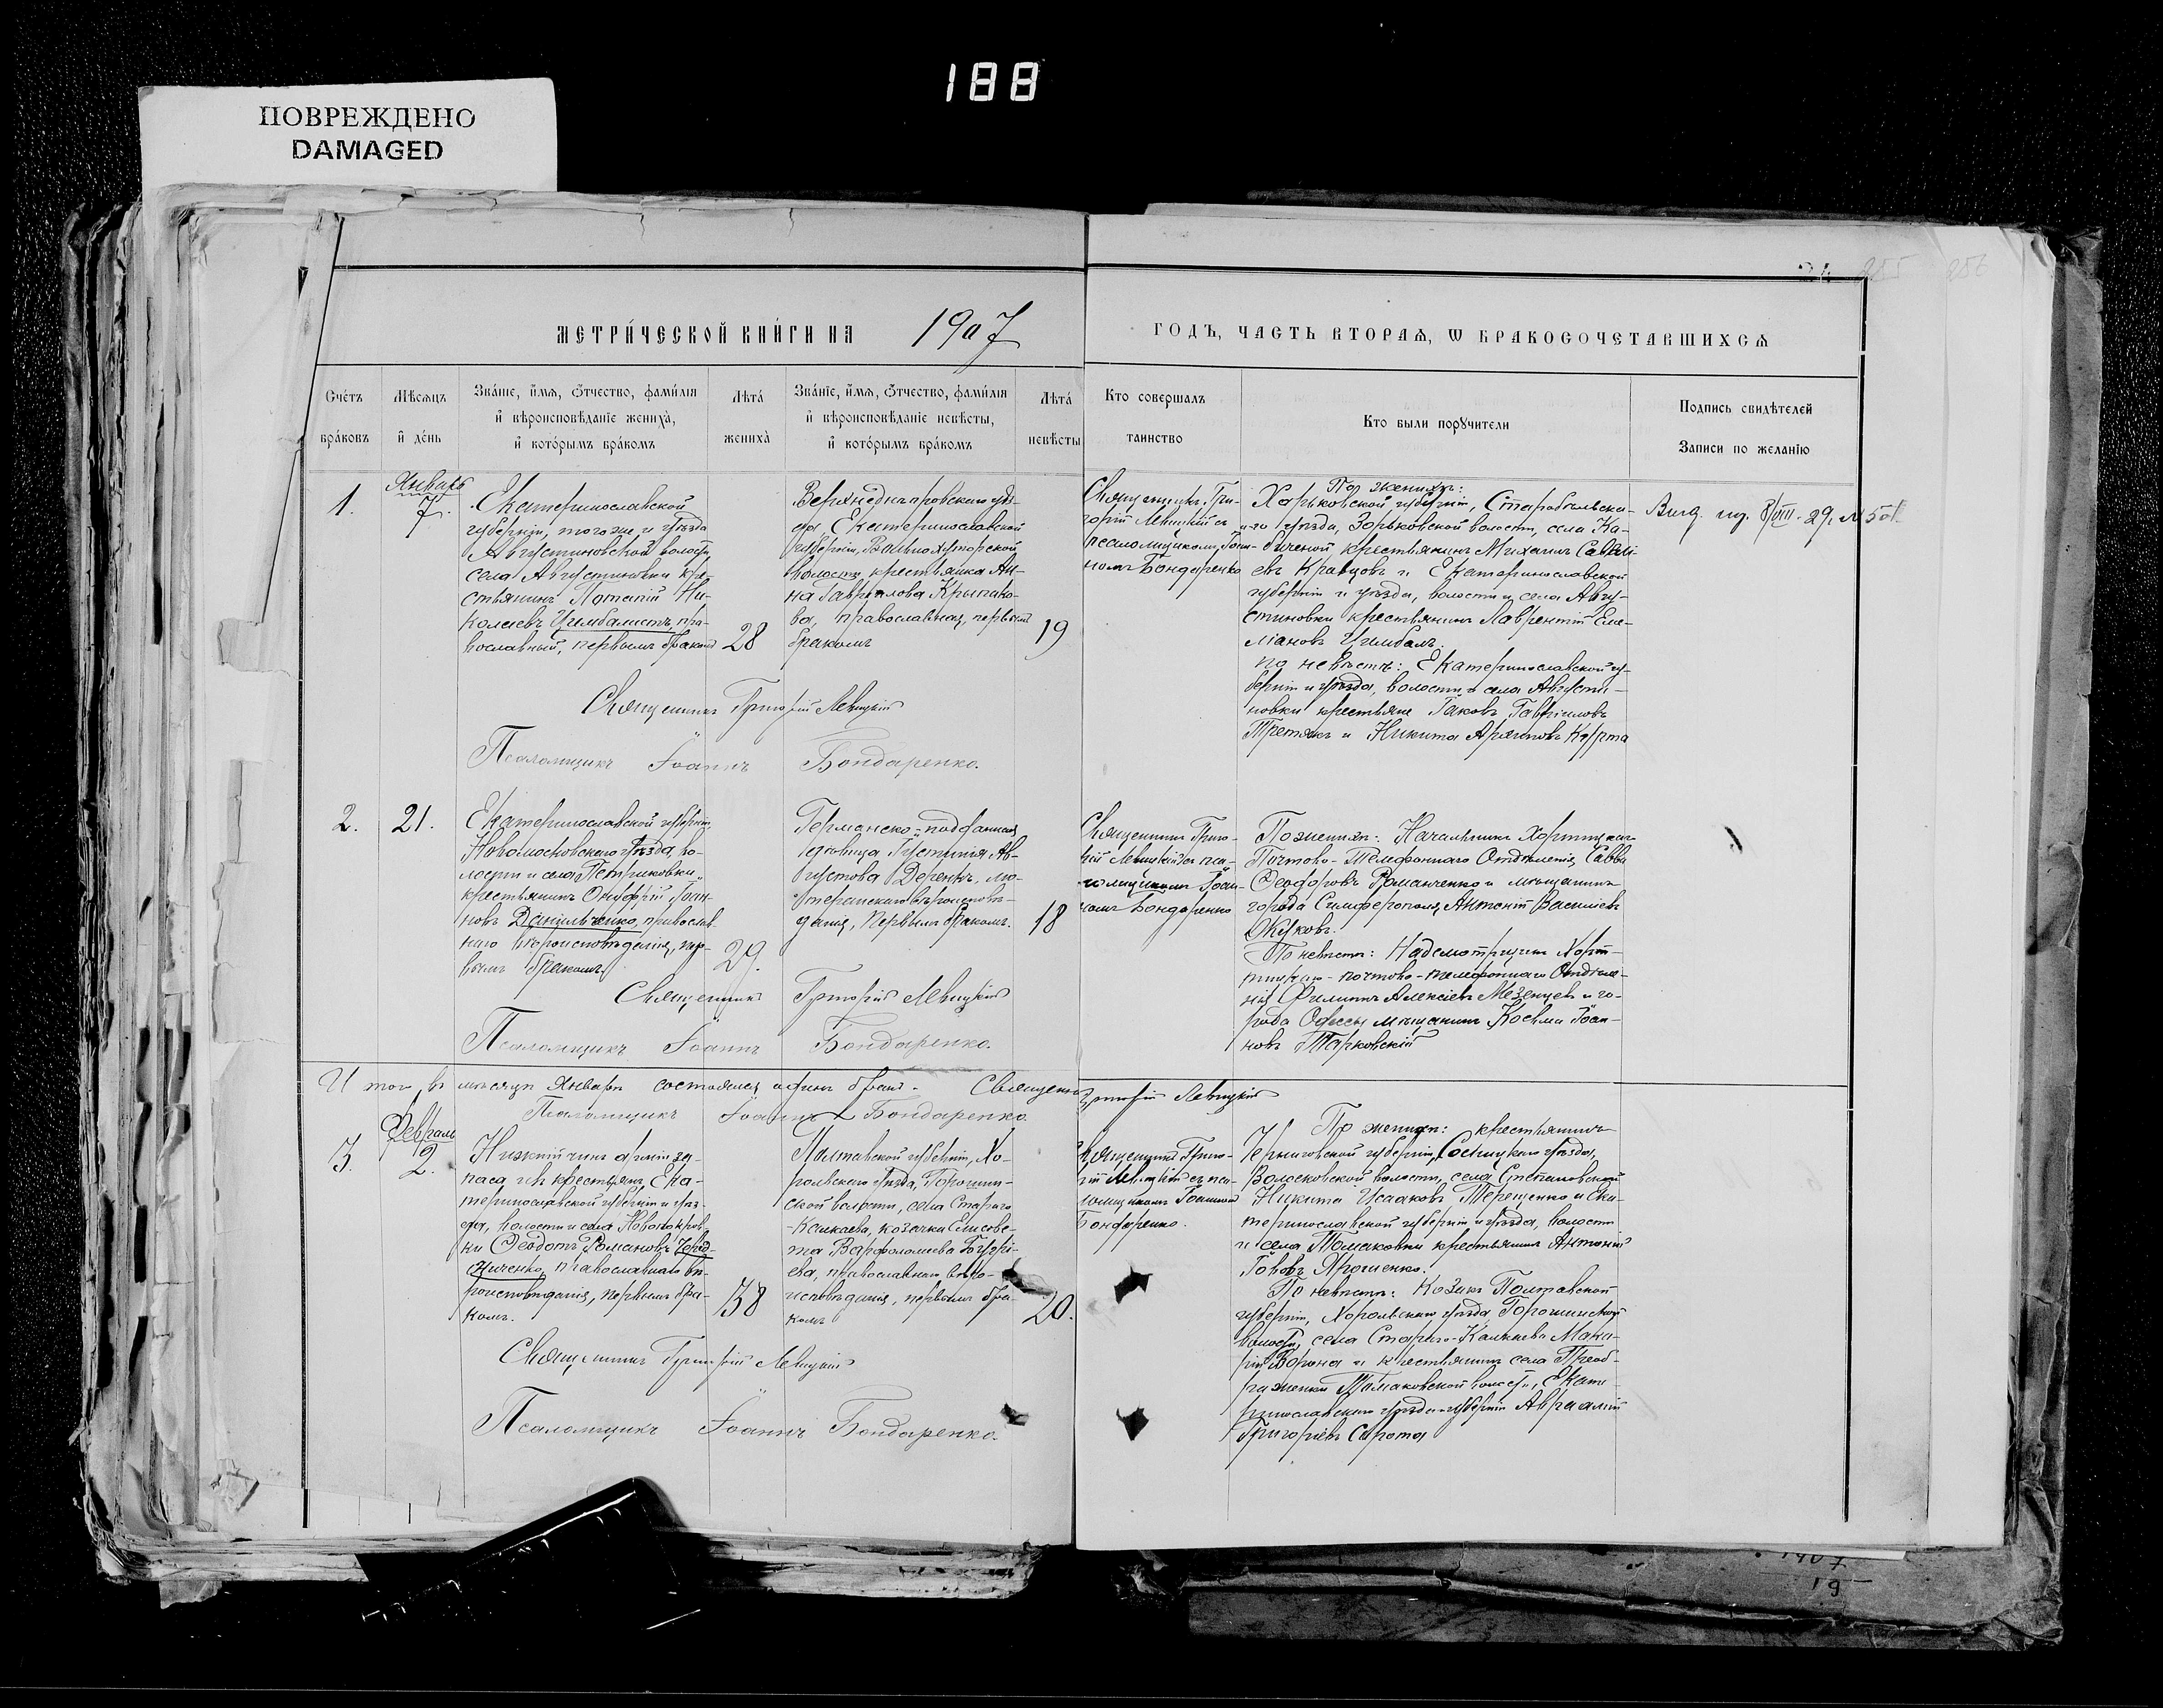 188
ПОВРЕЖДЕНО
DAMAGED
МЕТРИ́ЧЕСКОЙ КНИ́ГИ НА 1907
ГОДЪ, ЧАСТЬ ВТОРАѦ, Ѡ БРАКОСОЧЕТАВШИХСѦ
Счéтъ
брáковъ
Мѣсѧцъ
и дéнь
Звáнїе, и́мѧ, ѻ́тчество, фами́лїѧ
и вѣроисповѣ́данїе жениха̀,
и кото́рымъ бра́комъ
Лѣта́
жениха̀
Звáнїе, и́мѧ, ѻ́тчество, фами́лїѧ
и вѣроисповѣ́данїе невѣ́сты,
и кото́рымъ бра́комъ
Лѣта́
невѣ́сты
Кто совершалъ
таинство
Кто были порꙋчители
Подпись свидѣтелей
Записи по желанію
1.
Январь
7.
Екатеринославской
губерніи, того же и уѣзда
Августиновской волости,
села Августиновки кре-
стьянинъ Потапій Ни-
колаевъ Цимбалистъ, пра-
вославный, первымъ бракомъ
28
Верхнеднѣпровскаго уѣз-
да Екатеринославской
губерніи,
волости крестьянка Ан-
на Гаврилова
ва, православная, первымъ
бракомъ
19
Священникъ Гри-
горій Левицкій съ
псаломщикомъ Іоан-
номъ Бондаренко
По женихѣ:
Харьковской губерніи, Старобѣльска-
го уѣзда, Зорьковской волости, села Ка-
крестьянинъ Михаилъ Савель-
евъ Кравцовъ и Екатеринославской
губерніи и уѣзда, волости и села Авгу-
стиновки крестьянинъ Лаврентій
Цимбалъ.
По невѣстѣ: Екатеринославской гу-
берніи и уѣзда, волости и села Августи-
новки крестьяне Іаковъ Гавріиловъ
Третякъ и Никита
Выд. 8/VIII-29. №
Священникъ Григорій Левицкій
Псаломщикъ Іоаннъ Бондаренко.
2.
21.
Екатеринославской губерніи,
Новомосковскаго уѣзда, во-
лости и села Петриковки
крестьянинъ Онуфрій Іоан-
новъ Данильченко, православ-
наго вѣроисповѣданія, пер-
вымъ бракомъ.
29.
Германско-подданная
дѣвица Густинія Ав-
густова лю-
теранскаго вѣроисповѣ-
данія, первымъ бракомъ.
18
Священникъ Григо-
рій Левицкій съ пса-
ломщикомъ Іоан-
номъ Бондаренко
По женихѣ: Начальникъ Хортицкаго
Почтово-Телефоннаго Отдѣленія Савва
Ѳеодоровъ Романченко и мѣщанинъ
города Симферополя, Антоній Василіевъ
Жуковъ.
По невѣстѣ: Надсмотрщикъ Хорт-
ицкаго-почтово-телефоннаго Отдѣле-
нія Филиппъ Алексіевъ Мезенцевъ и го-
рода Одессы мѣщанинъ Косьма Іоан-
новъ Тарковскій
Священникъ Григорій Левицкій
Псаломщикъ Іоаннъ Бондаренко.
Итого, въ мѣсяцѣ Январѣ состоялся одинъ бракъ. Священникъ
Григорій Левицкій
Псаломщикъ Іоаннъ Бондаренко.
3.
Февраль
2.
Нижній чинъ арміи за-
паса изъ крестьянъ Ека-
теринославской губерніи и уѣз-
да, волости и села Новопокров-
ки Ѳеодотъ Романовъ
православнаго вѣ-
роисповѣданія, первымъ бра-
комъ.
38
Полтавской губерніи, Хо-
рольскаго уѣзда, Горошин-
ской волости, села Стараго
козачка Елисаве-
та Варфоломеева
ева, православнаго вѣро-
исповѣданія, первымъ бра-
комъ
20.
Священникъ Григо-
рій Левицкій съ пса-
ломщикомъ Іоанномъ
Бондаренко.
По женихѣ: крестьянинъ
Черниговской губерніи, Сосницкаго уѣзда,
Волосковской волости, села Степановской
Никита Исааковъ Терещенко и Ека-
теринославской губерніи и уѣзда, волости
и села Томаковки крестьянинъ Антоній
Іововъ Ярошенко.
По невѣстѣ: Козакъ Полтавской
губерніи, Хорольскаго уѣзда, Горошинской
волости, села Стараго Мака-
рій Ворона и крестьянинъ села Преоб-
раженки Томаковской волости, Екате-
ринославскаго уѣзда и губерніи Авраамій
Григоріевъ Сирота
Священникъ Григорій Левицкій
Псаломщикъ Іоаннъ Бондаренко.
1907
19